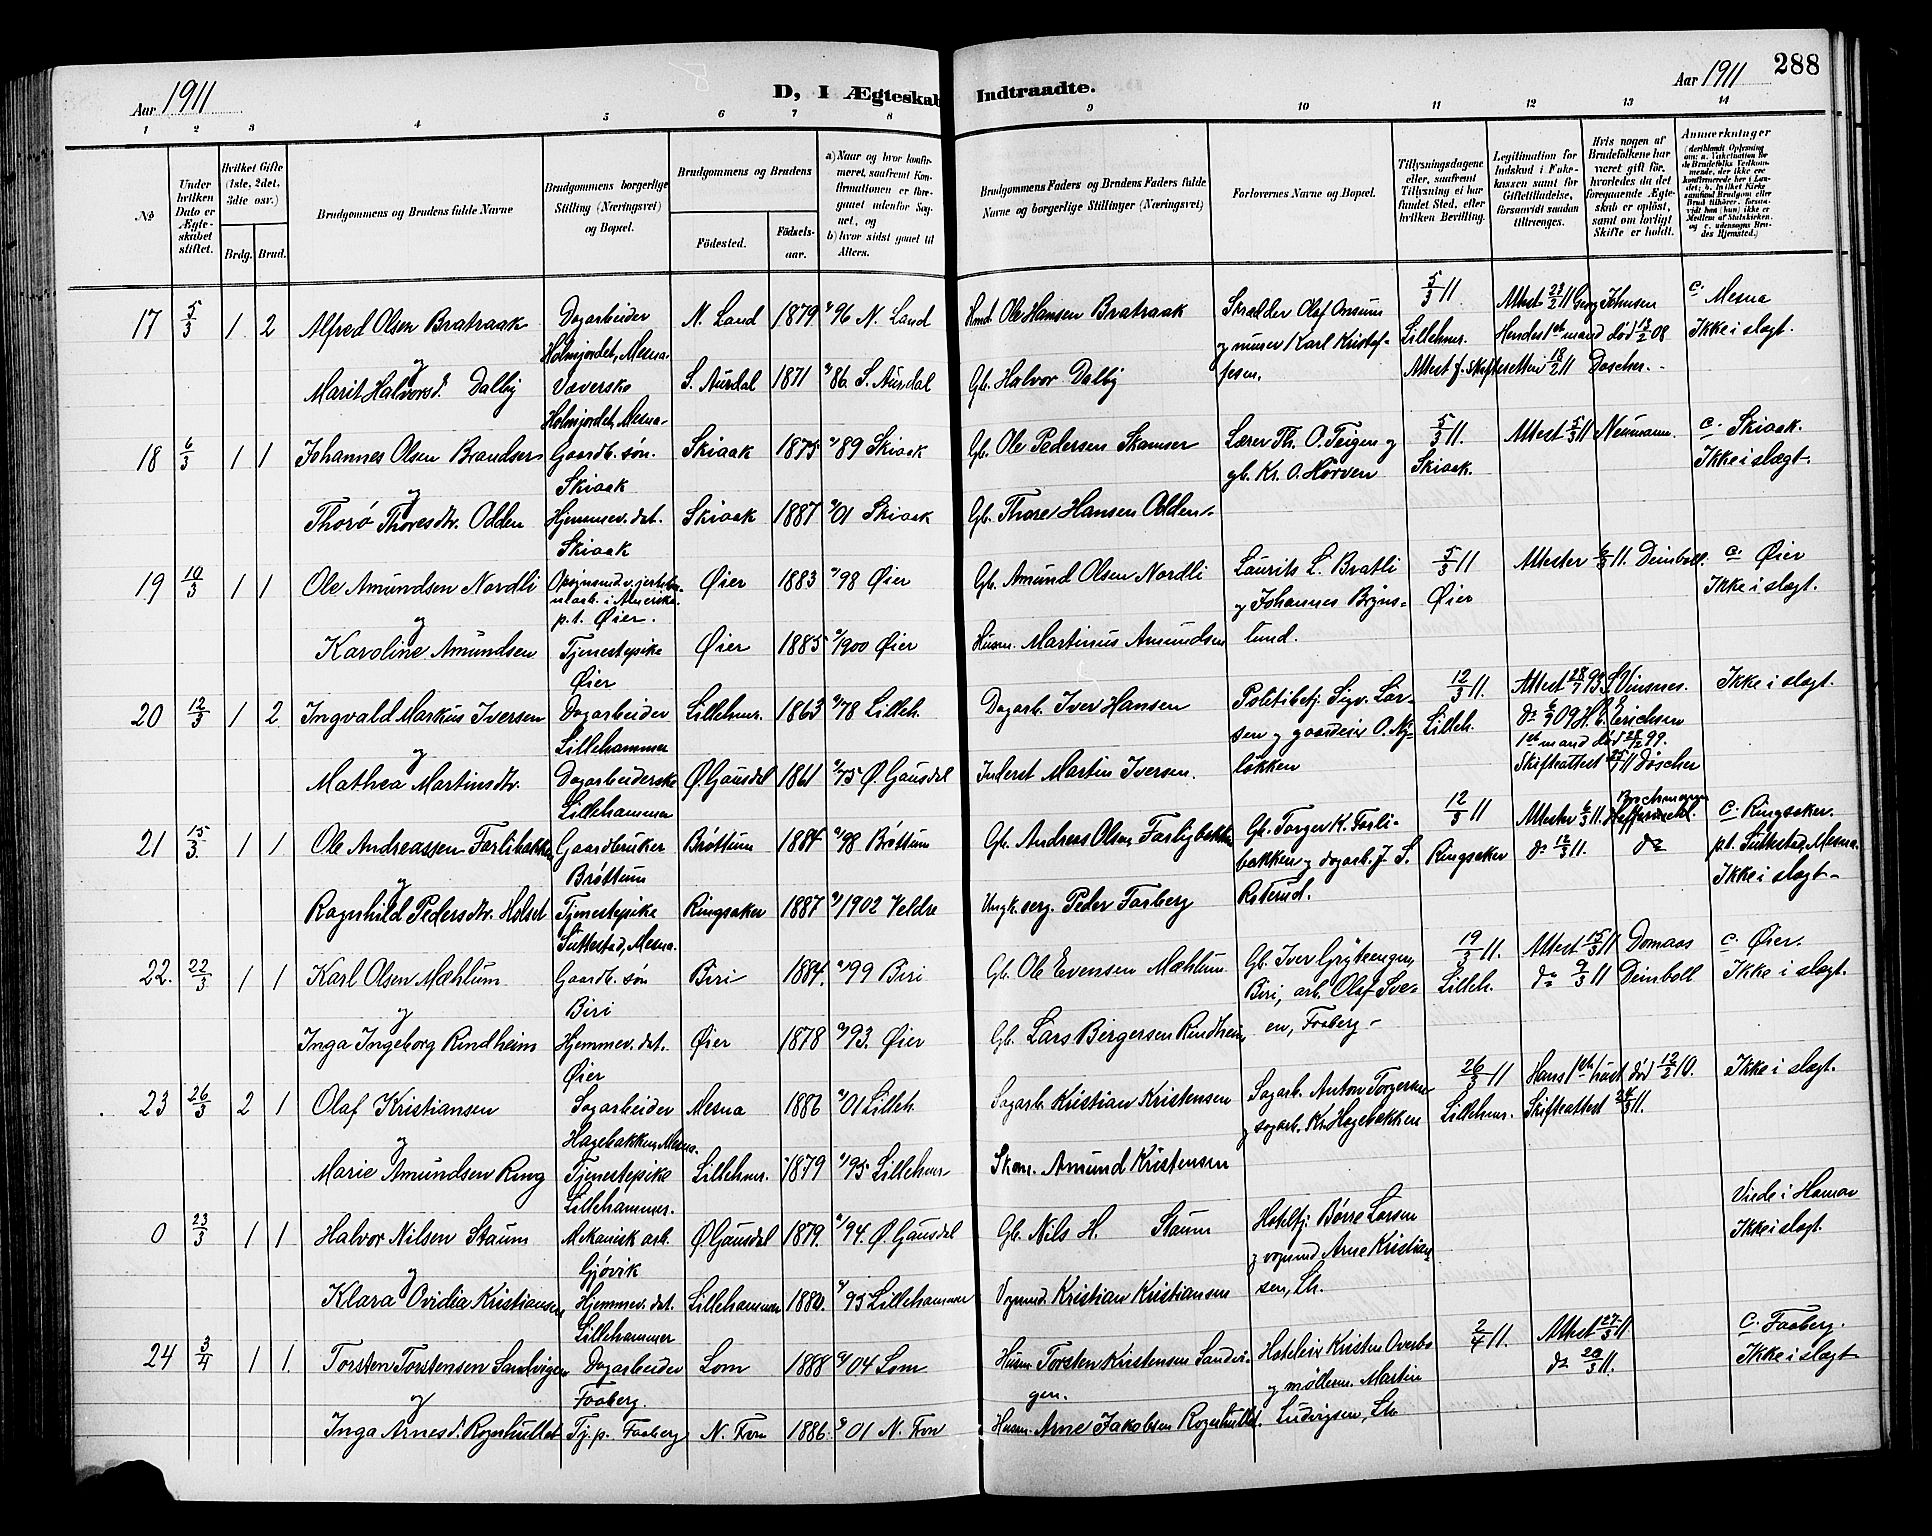 Aar 1911
D, I Ægteskab Indtraadte.
Aar 1911
288
1 2 3 4 5 6 7 8 9 10 11 12 13 14
No
Under hvilken Dato er Ægteskabet stiftet.
Hvilket Gifte (1ste, 2det, 3die osv.)
Brdg. Brud.
Brudgommens og Brudens fulde Navne
Brudgommens borgerlige Stilling (Næringsvei) og Bopæl.
Brudgommens og Brudens
Födested.
Födselsaar.
a) Naar og hvor konfirmeret, saafremt Konfirmationen er foregaaet udenfor Sognet, og
b) hvor sidst gaaet til Alters.
Brudgommens Faders og Brudens Faders fulde Navne og borgerlige Stillinger (Næringsvei)
Forlovernes Navne og Bopæl.
Tillysningsdagene eller, saafremt Tillysning ei har fundet Sted, efter hvilken Bevilling.
Legitimation for Indskud i Enkekassen samt for Giftetilladelse, forsaavidt saadan tiltrænges.
Hvis nogen af Brudefolkene har været gift för, hvorledes da det foregaaende Ægteskab er oplöst, samt om lovligt Skifte er holdt.
Anmærkninger
17 5/3 1 2 Alfred Olsen Bratraak Dagarbeider Holmjordet, Mesna. N. Land 1879 96 N. Land Hmd. Ole Hansen Bratraak Skrædder Olaf Onsum og murer Karl Kristoffesen. 5/3 11. Lillehmr. Attest 23/2 11 Georg Johnsen Hendes 1ste mand død 13/2 08 c. Mesna Ikke i slægt.
og
Marit Halvorsd. Dalby Væverske Holmjordet, Mesna. S. Aurdal 1871 86 S. Aurdal Gb. Halvor Dalby Attest f. skifteretten 18/2 11 Doscher.
18 6/3 1 1 Johannes Olsen Brandser Gaardb. søn. Skiaak Skiaak 1875 89 Skiaak Gb. Ole Pedersen Skamser Lærer Th. O. Teigen og gb. Kr. O. Hörven 5/3 11. Skiaak. Attest 5/3 11 Neumann. c. Skiaak. Ikke i slægt.
og
Thorø Thoresdtr. Odden Hjemmev. dat. Skiaak Skiaak 1887 01 Skiaak Gb. Thore Hansen Odden.
19 10/3 1 1 Ole Amundsen Nordli i Amerika p.t. Øier. Øier 1883 98 Øier Gb. Amund Olsen Nordli Laurits L. Bratli og Johannes Brynslund. 5/3 11 Øier Attester 6/3 11. Deinboll. c. Øier Ikke i slægt.
og
Karoline Amundsen Tjenestepike Øier Øier 1885 1900 Øier Husm. Martinus Amundsen
20 12/3 1 2 Ingvald Markus Iversen Dagarbeider Lillehammer Lillehmr. 1863 78 Lilleh. Dagarb. Iver Hansen Politibetj. Sigv. Larsen og gaardeier O. Nyløkken 12/3 11. Lilleh. Attest 28/7 93 S. Vinsnes. do 6/9 09 H. C. Erichsen 1ste mand død 28/2 99. Skifteattest 25/1 11 Döscher Ikke i slægt.
og
Mathea Martinsdtr. Dagarbeiderske Lillehammer Ø. Gausdal 1861 75 Ø. Gausdal Inderst Martin Iversen.
21 15/3 1 1 Ole Andreassen Farlibakken Gaardbruker Brøttum Brøttum 1884 98 Brøttum Gb. Andreas Olsen Farlibakken Gb. Torger K. Farlibakken og dagarb. J. S. Roterud. 12/3 11 Ringsaker Attester 6/3 11. do 12/3 11. do c. Ringsaker. p.t. Suttestad, Mesna. Ikke i slægt
og
Ragnhild Pedersdtr. Holset Tjenestepike Suttestad, Mesna. Ringsaker 1887 1902 Veldre Ungk. serg. Peder Farberg
22. 22/3 1 1 Karl Olsen Mæhlum Gaardb. søn Biri Biri 1884. 99 Biri Gb. Ole Evensen Mæhlum Gb. Iver Grytengen, Biri, arb. Olaf Sveen, Faaberg 19/3 11. Lilleh. Attest 15/3 11 Domaas do 9/3 11 Deinboll c. Øier. Ikke i slægt.
og
Inga Ingeborg Rindheim Hjemmev. dat. Øier Øier 1878 93. Øier Gb. Lars Bergersen Rindheim
23 26/3 2 1 Olaf Kristiansen Sagarbeider Hagebakken, Mesna. Mesna 1886 01 Lilleh. Sagarb. Kristian Kristensen Sagarb. Anton Torgersen og sagarb. Kr. Hagebakken 26/3 11 Lillehmr. Hans 1ste hustr død 12/2 10. Skifteattest 24/3 11. Ikke i slægt.
og
Marie Amundsen Ring Tjenestepike Lillehammer. Lillehmr. 1879 95 Lillehmr Skom. Amund Kristensen
0 23/3 1 1 Halvor Nilsen Staum Mekanisk arb. Gjøvik Ø. Gausdal 1879. 94. Ø. Gausdal Gb. Nils H. Staum Hotelfj. Börre Larsen og vognmd Arne Kristiansen, Lh. Viede i Hamar Ikke i slægt.
og
Klara Ovidia Kristiansen Hjemmev. dat. Lillehammer Lillehammer 1880. 95 Lillehammer Vognmd. Kristian Kristiansen
24 3/4 1 1. Torsten Torstensen Sandvigen Dagarbeider Faaberg. Lom 1888 04 Lom Husm. Torsten Kirstensen Sandvigen. Hoteleier Kristen Overbo og møllerm. Martin Ludvigsen, Lh. 2/4 11. Attest 27/3 11 do 20/3 11. c. Faaberg. Ikke i slægt
og
Inga Arnesd. Rognhullet Tj. p. Faaberg N. Fron 1886. 01 N. Fron Husm. Arne Jakobsen Rognhullet.